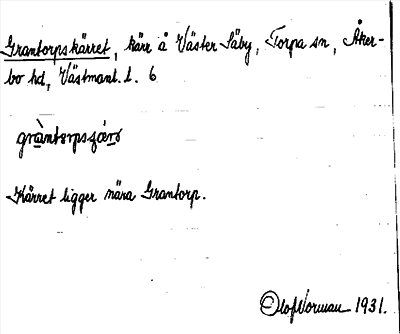 Grantorpskärret, kärr å Väster Säby, Torpa sn, Åker-
bo hd, Västmanl. l. 6
Kärret ligger nära Grantorp.
Olof Norman 1931.